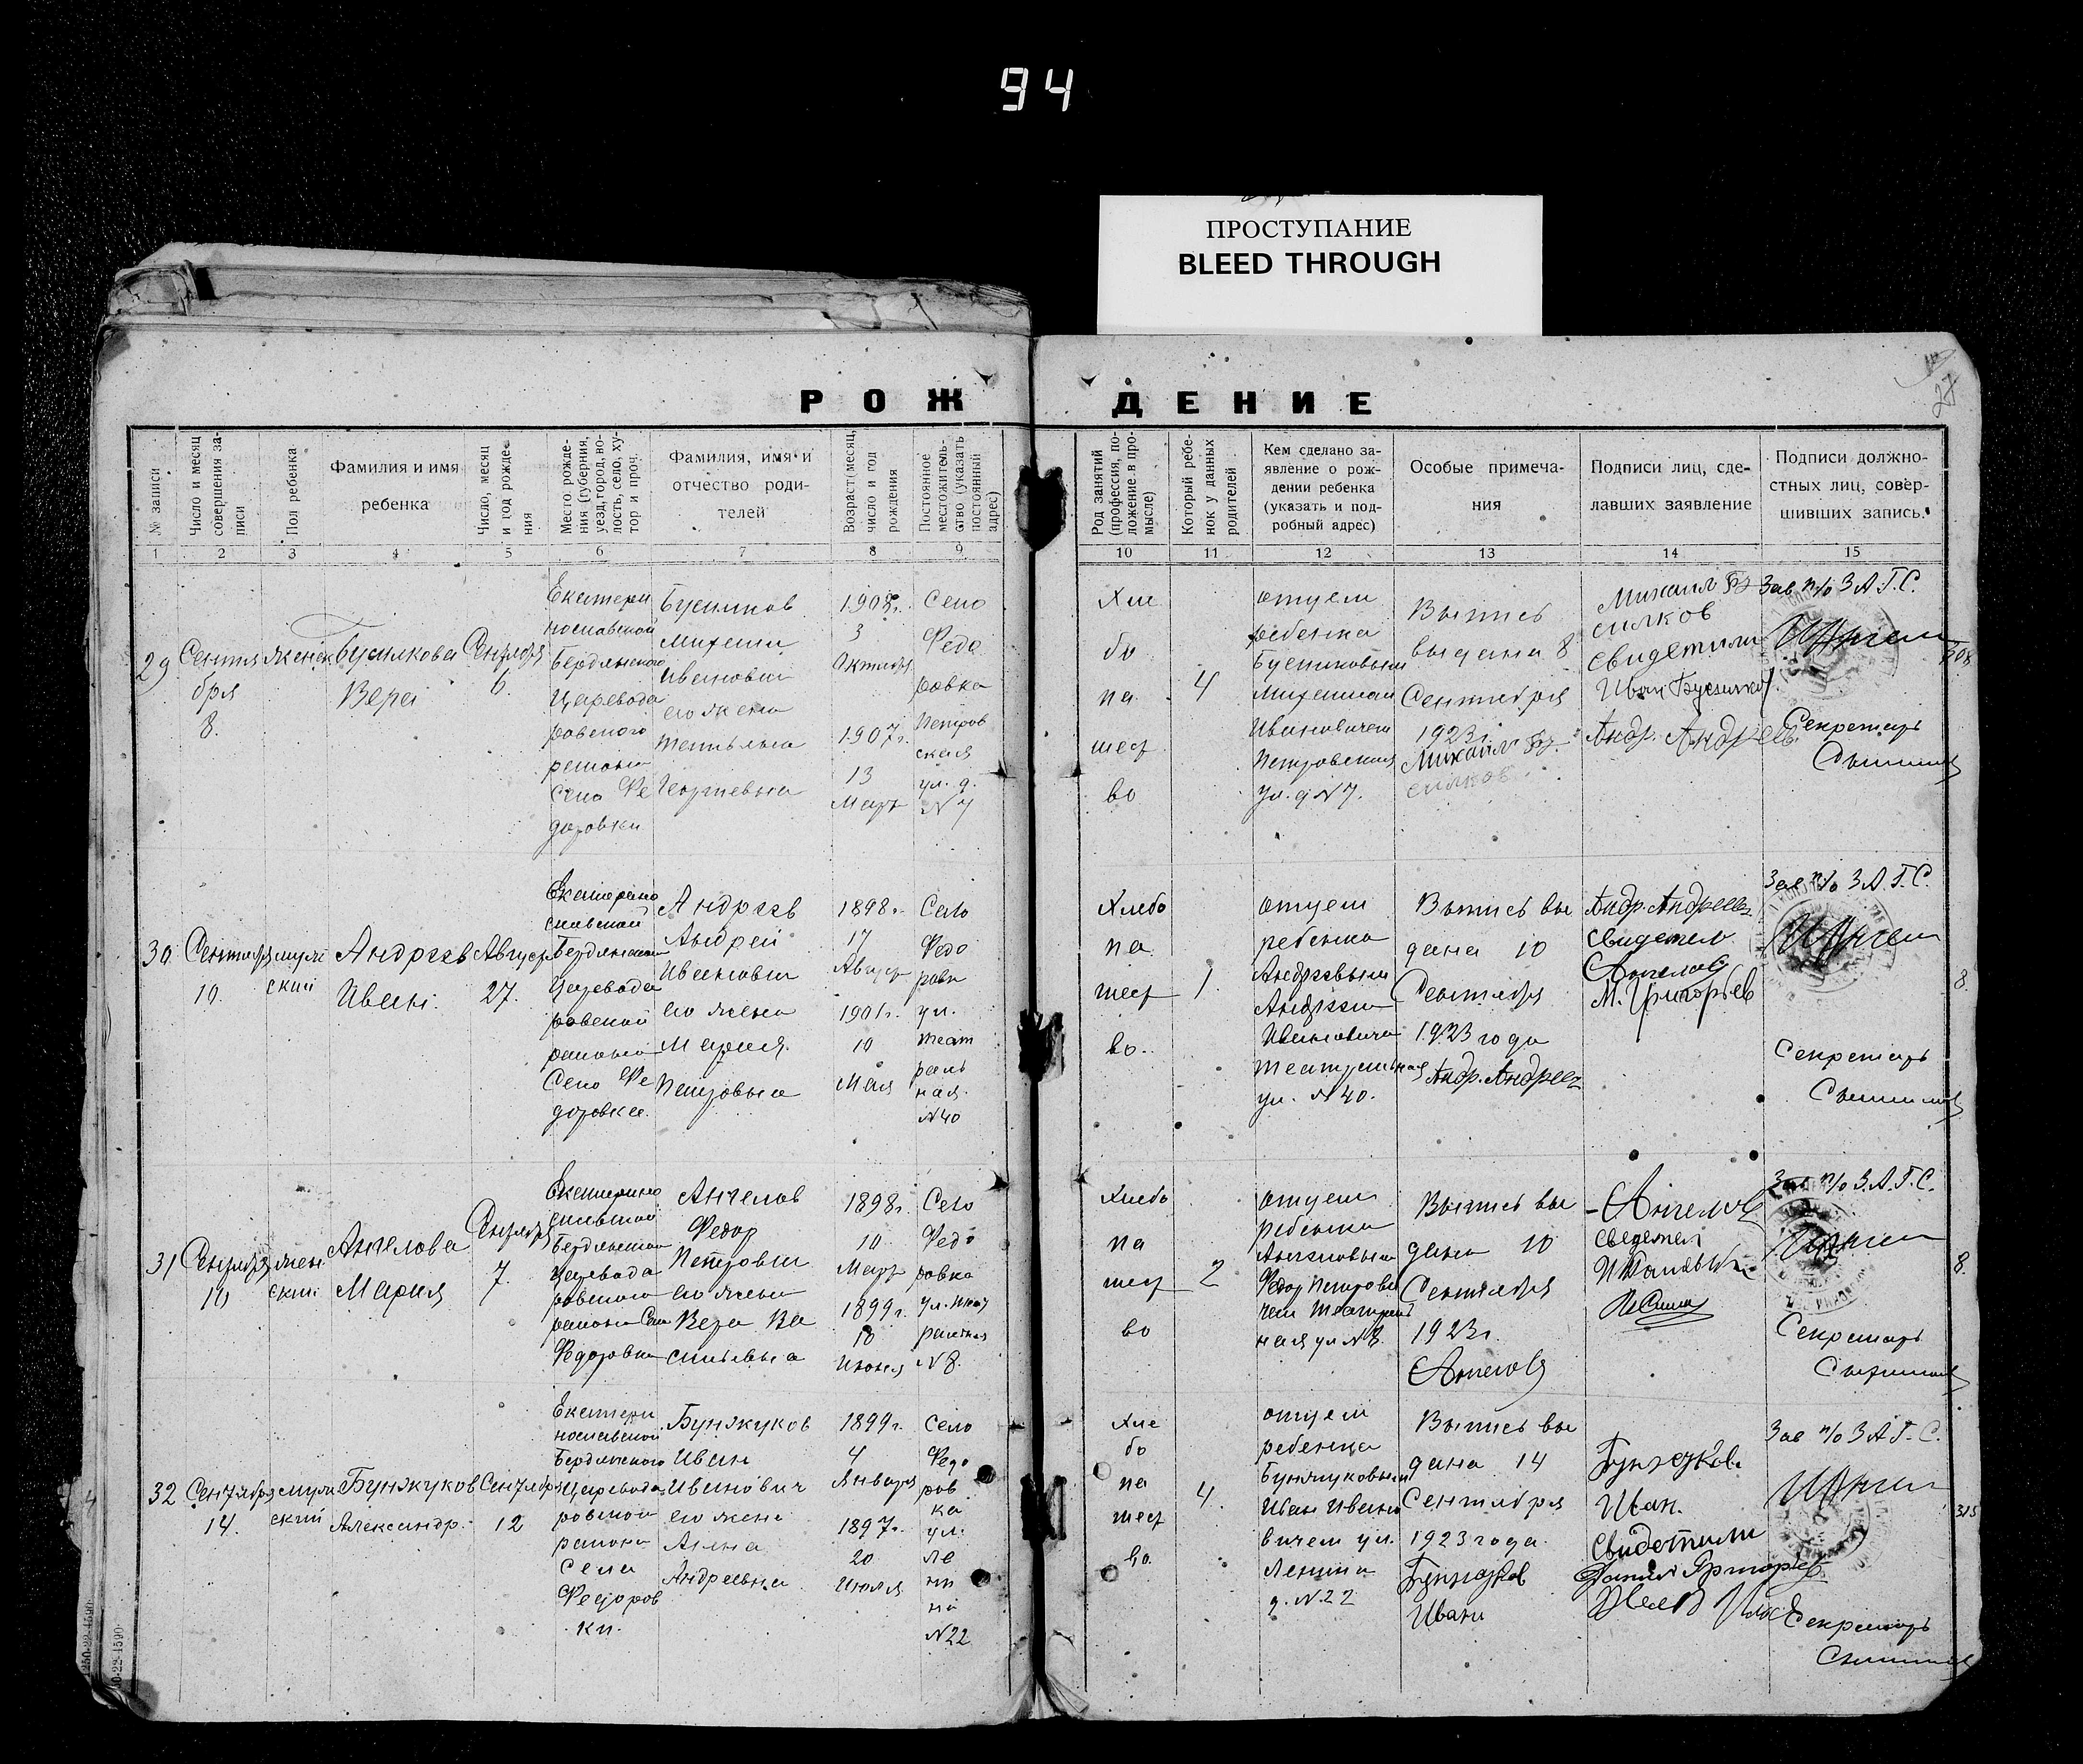 94
ПРОСТУПАНИЕ
BLEED THROUGH
27
РОЖДЕНИЕ
№ записи
Число и месяц совершения записи
Пол ребенка
Фамилия и имя
ребенка
Число, месяц и год рождения
Место рождения (губерния, уезд, город, волость, село, хутор и проч.
Фамилия, имя и
отчество роди-
телей
Возраст (месяц, число и год рождения
Постоянное местожительство (указать постоянный адрес)
Род занятий (профессия, положение в промысле)
Который ребенок у данных родителей
Кем сделано за-
явление о рож-
дении ребенка
(указать и под-
робный адрес)
Особые примеча-
ния
Подписи лиц, сде-
лавших заявление
Подписи должно-
стных лиц, совер-
шивших запись.
1 2 3 4 5 6 7 8 9 10 11 12 13 14 15
29
Сентя
бря
8.
женск
Бусилкова
Вера
Сентября
6.
Екатери
нославской
Бердянского
Царевода
ровского
района
Село Фе
доровки
Бусилков
Михаил
Иванович
его жена
Татьяна
Георгиевна
1908г.
3
Октября
1907г.
13
Март
Село
Федо
ровка
Петров
ская
ул. д.
N 7
Хле
бо
па
шест
во
4
отцем
ребенка
Бусилковым
Михаилом
Ивановичем
Петровская
ул. д N 7.
Выпись
выдана 8
Сентября
1923г.
Михаил Бу
силков
Михаил Бу
силков
свидетили
Иван Бусилков
Андр. Андреев
Зав п/о З.А.Г.С.
Секретарь
30
Сентября
10.
мужс
ский
Андреев
Иван.
Август
27.
Екатерино
славской
Бердянской
Царевода
ровской
района
Село Фе
доровке.
Андреев
Андрей
Иванович
его жена
Мария
Петровна
1898г.
17
Август
1901г.
10
Мая
Село
Федо
ровк
ул.
Теат
раль
ная.
N40
Хлебо
па
шест
во.
1
отцем
ребенка
Андреевым
Андреем
Ивановича
Театральная
ул. N 40.
Выпись вы
дана 10
Сентября
1923 года
Андр. Андреев
Андр. Андреев
свидетел
Ангелов
М. Григорьев
Зав п/о З.А.Г.С.
Секретарь
8.
31
Сентября
10
жен
ский
Ангелова
Мария
Сентября
7.
Екатерино
славской
Бердянской
Царевода
ровского
района Село
Федоровка
Ангелов
Федор
Петрович
его жена
Вера Ва
сильевна
1898г.
10
Март
1899г.
10
Июня
Село
Федо
ровка
ул. Теат
ральная
N8.
Хлебо
па
шест
во
2
отцем
ребенка
Ангеловым
Федор Петрови
чем Театраль
ная ул N 8.
Выпись вы
дана 10
Сентября
1923г.
Ангелов
Ангелов
сведетел
Зав п/о З.А.Г.С.
Секретарь
8.
32
Сентября
14.
мужс
ский
Бунжуков
Александр.
Сентября
12
Екатери
нославской
Бердянского
Царевода
ровской
района
Села
Федоров
ки.
Бунжуков
Иван
Иванович
его жена
Анна
Андреевна
1899г.
4
Января
1897г.
20
Июля
Село
Федо
ров
ка
ул.
Ле
ни
на
N22
Хле
бо
па
шест
во.
4.
отцем
ребенка
Бунжуковым
Иван Ивано
вичем ул.
Ленина
д. N.22
Выпись вы
дана 14
Сентября
1923 года.
Бунжуков
Иван
Бунжуков.
Иван.
Свидетили
Зав п/о З.А.Г.С.
Секретарь
315